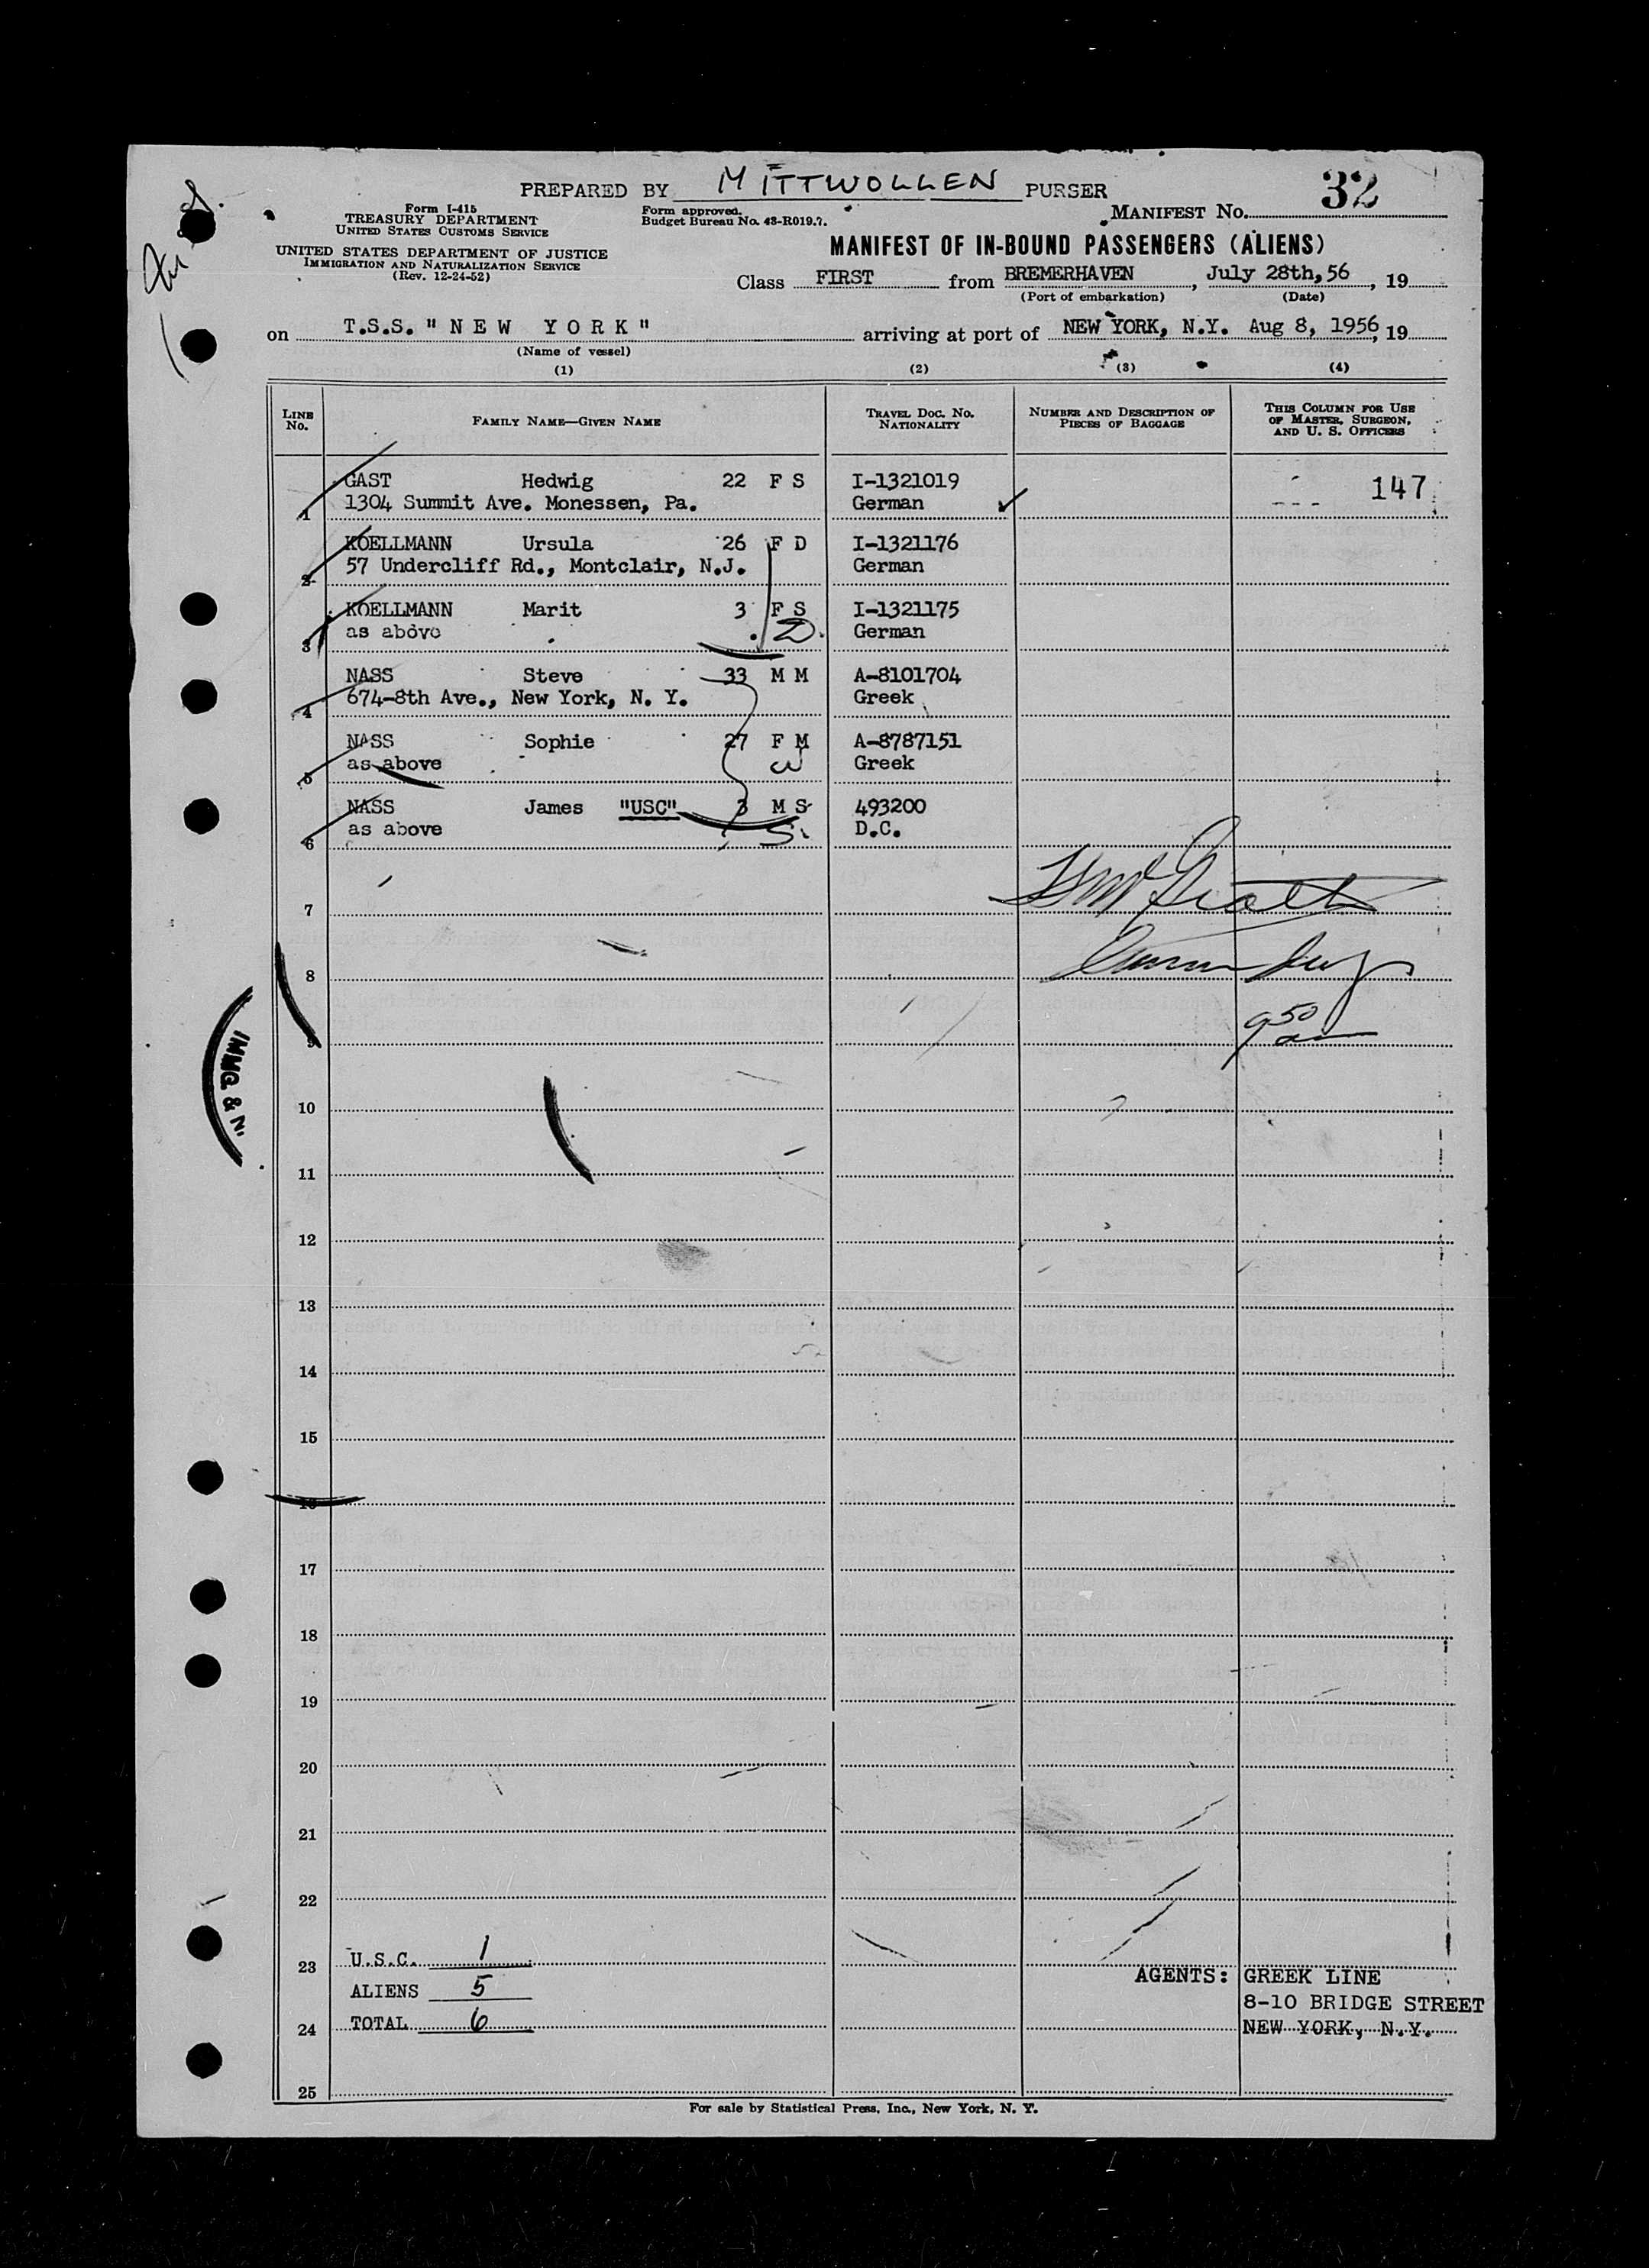 PREPARED BY MITTWOLLEN PURSER
32
Form I-415
TREASURY DEPARTMENT
UNITED STATES CUSTOMS SERVICE
Form approved.
Budget Bureau No. 43-R019.7.
MANIFEST No.
UNITED STATES DEPARTMENT OF JUSTICE
IMMIGRATION AND NATURALIZATION SERVICE
(Rev. 12-24-52)
MANIFEST OF IN-BOUND PASSENGERS (ALIENS)
Class FIRST from BREMERHAVEN, July 28th,56, 19
(Port of embarkation) (Date)
on T.S.S. "NEW YORK" arriving at port of NEW YORK, N.Y. Aug 8, 1956, 19
(Name of vessel)
(1) (2) (3) (4)
LINE No. FAMILY NAME—GIVEN NAME TRAVEL DOC. NO. NATIONALITY NUMBER AND DESCRIPTION OF PIECES OF BAGGAGE THIS COLUMN FOR USE OF MASTER, SURGEON, AND U. S. OFFICERS
GAST Hedwig 22 F S I-1321019 147
1 1304 Summit Ave. Monessen, Pa. German
KOELLMANN Ursula 26 F D I-1321176
2 57 Undercliff Rd., Montclair, N.J. German
KOELLMANN Marit 3 F S I-1321175
3 as above 2 German
NASS Steve 33 M M A-8101704
4 674-8th Ave., New York, N. Y. Greek
NASS Sophie 27 F M A-8787151
5 as above 3 Greek
NASS James "USC" 3 M S 493200
6 as above D.C.
7
8
9
9 50 am
IMMG. & N.
10
11
12
13
14
15
16
17
18
19
20
21
22
23 U.S.C. 1
ALIENS 5
24 TOTAL 6
AGENTS: GREEK LINE
8-10 BRIDGE STREET
NEW YORK, N.Y.
25
For sale by Statistical Press, Inc., New York, N. Y.